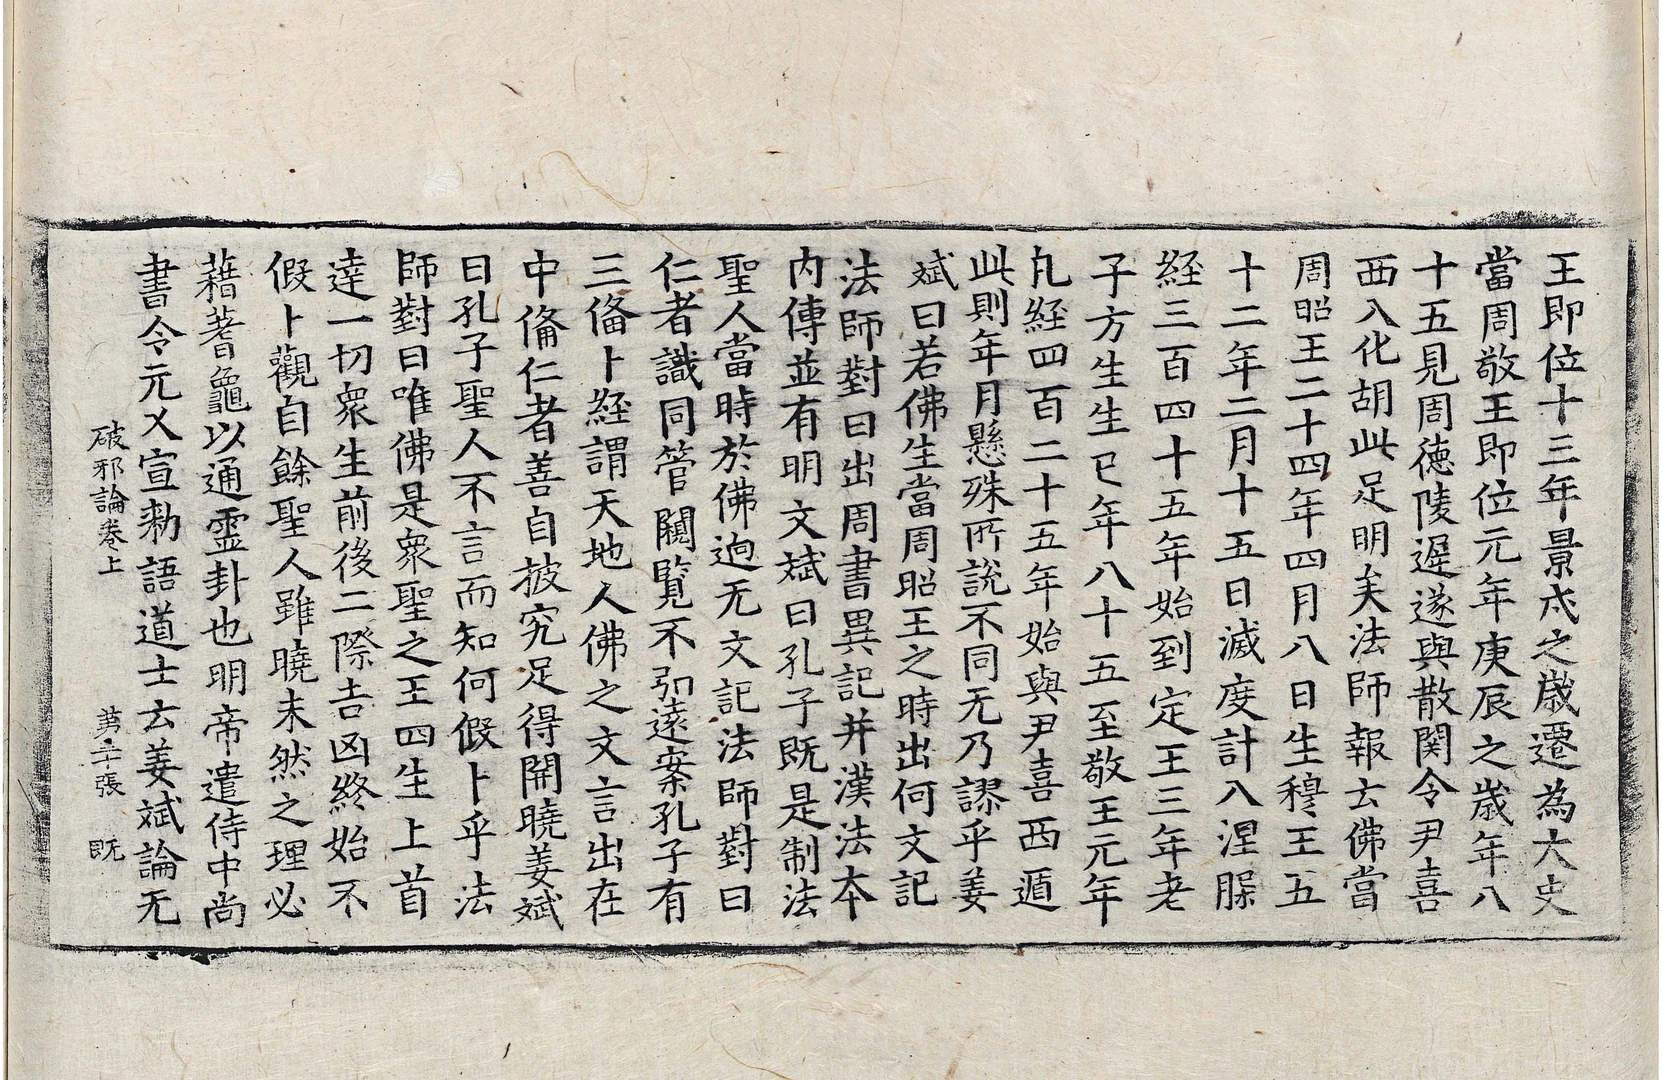 王即位十三年景戌之歲遷為大史
當周敬王即位元年庚辰之歲年八
十五見周德陵遲遂與散関令尹喜
西入化胡此足明矣法師報云佛當
周昭王二十四年四月八日生穆王五
十二年二月十五日滅度計入涅槃
経三百四十五年始到定王三年老
子方生生已年八十五至敬王元年
凡経四百二十五年始與尹喜西遁
此則年月懸殊所說不同无乃謬乎姜
斌曰若佛生當周昭王之時出何文記
法師對曰出周書異記并漢法本
内傳並有明文斌曰孔子既是制法
聖人當時於佛逈无文記法師對曰
仁者識同管闚覧不弘遠案孔子有
三俻卜經謂天地人佛之文言出在
中俻仁者善自披究足得開曉姜斌
曰孔子聖人不言而知何假卜乎法
師對曰唯佛是衆聖之王四生上首
達一切衆生前後二際吉凶終始不
假卜觀自餘聖人雖曉未然之理必
藉蓍龜以通靈卦也明帝遣侍中尚
書令元乂宣勑語道士云姜斌論无
破邪論卷上 第二十張 既